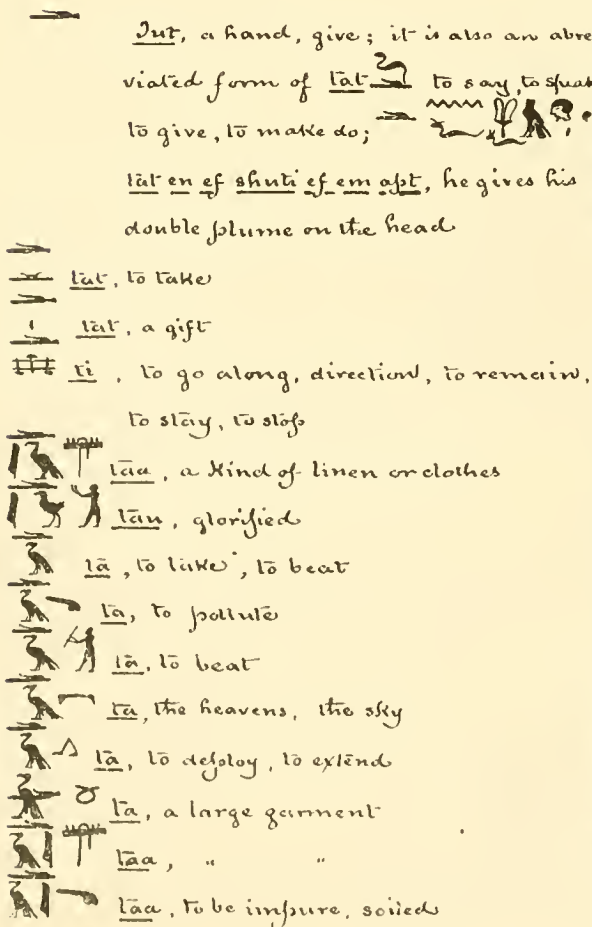 Tut, a hand, give; it is also an abre
viated form of tat to say, to speak
to give, to make do;
tāt en ef shuti ef em apt, he gives his
double plume on the head
tat, to take
tāt, a gift
ti, to go along, direction, to remain,
to stay, to stop
tāa, a kind of linen or clothes
tāu, glorified
tā, to take, to beat
ta, to pollute
tā, to beat
ta, the heavens, the sky
tā, to deploy, to extend
ta, a large garment
tāa, " "
tāa, to be impure, soiled